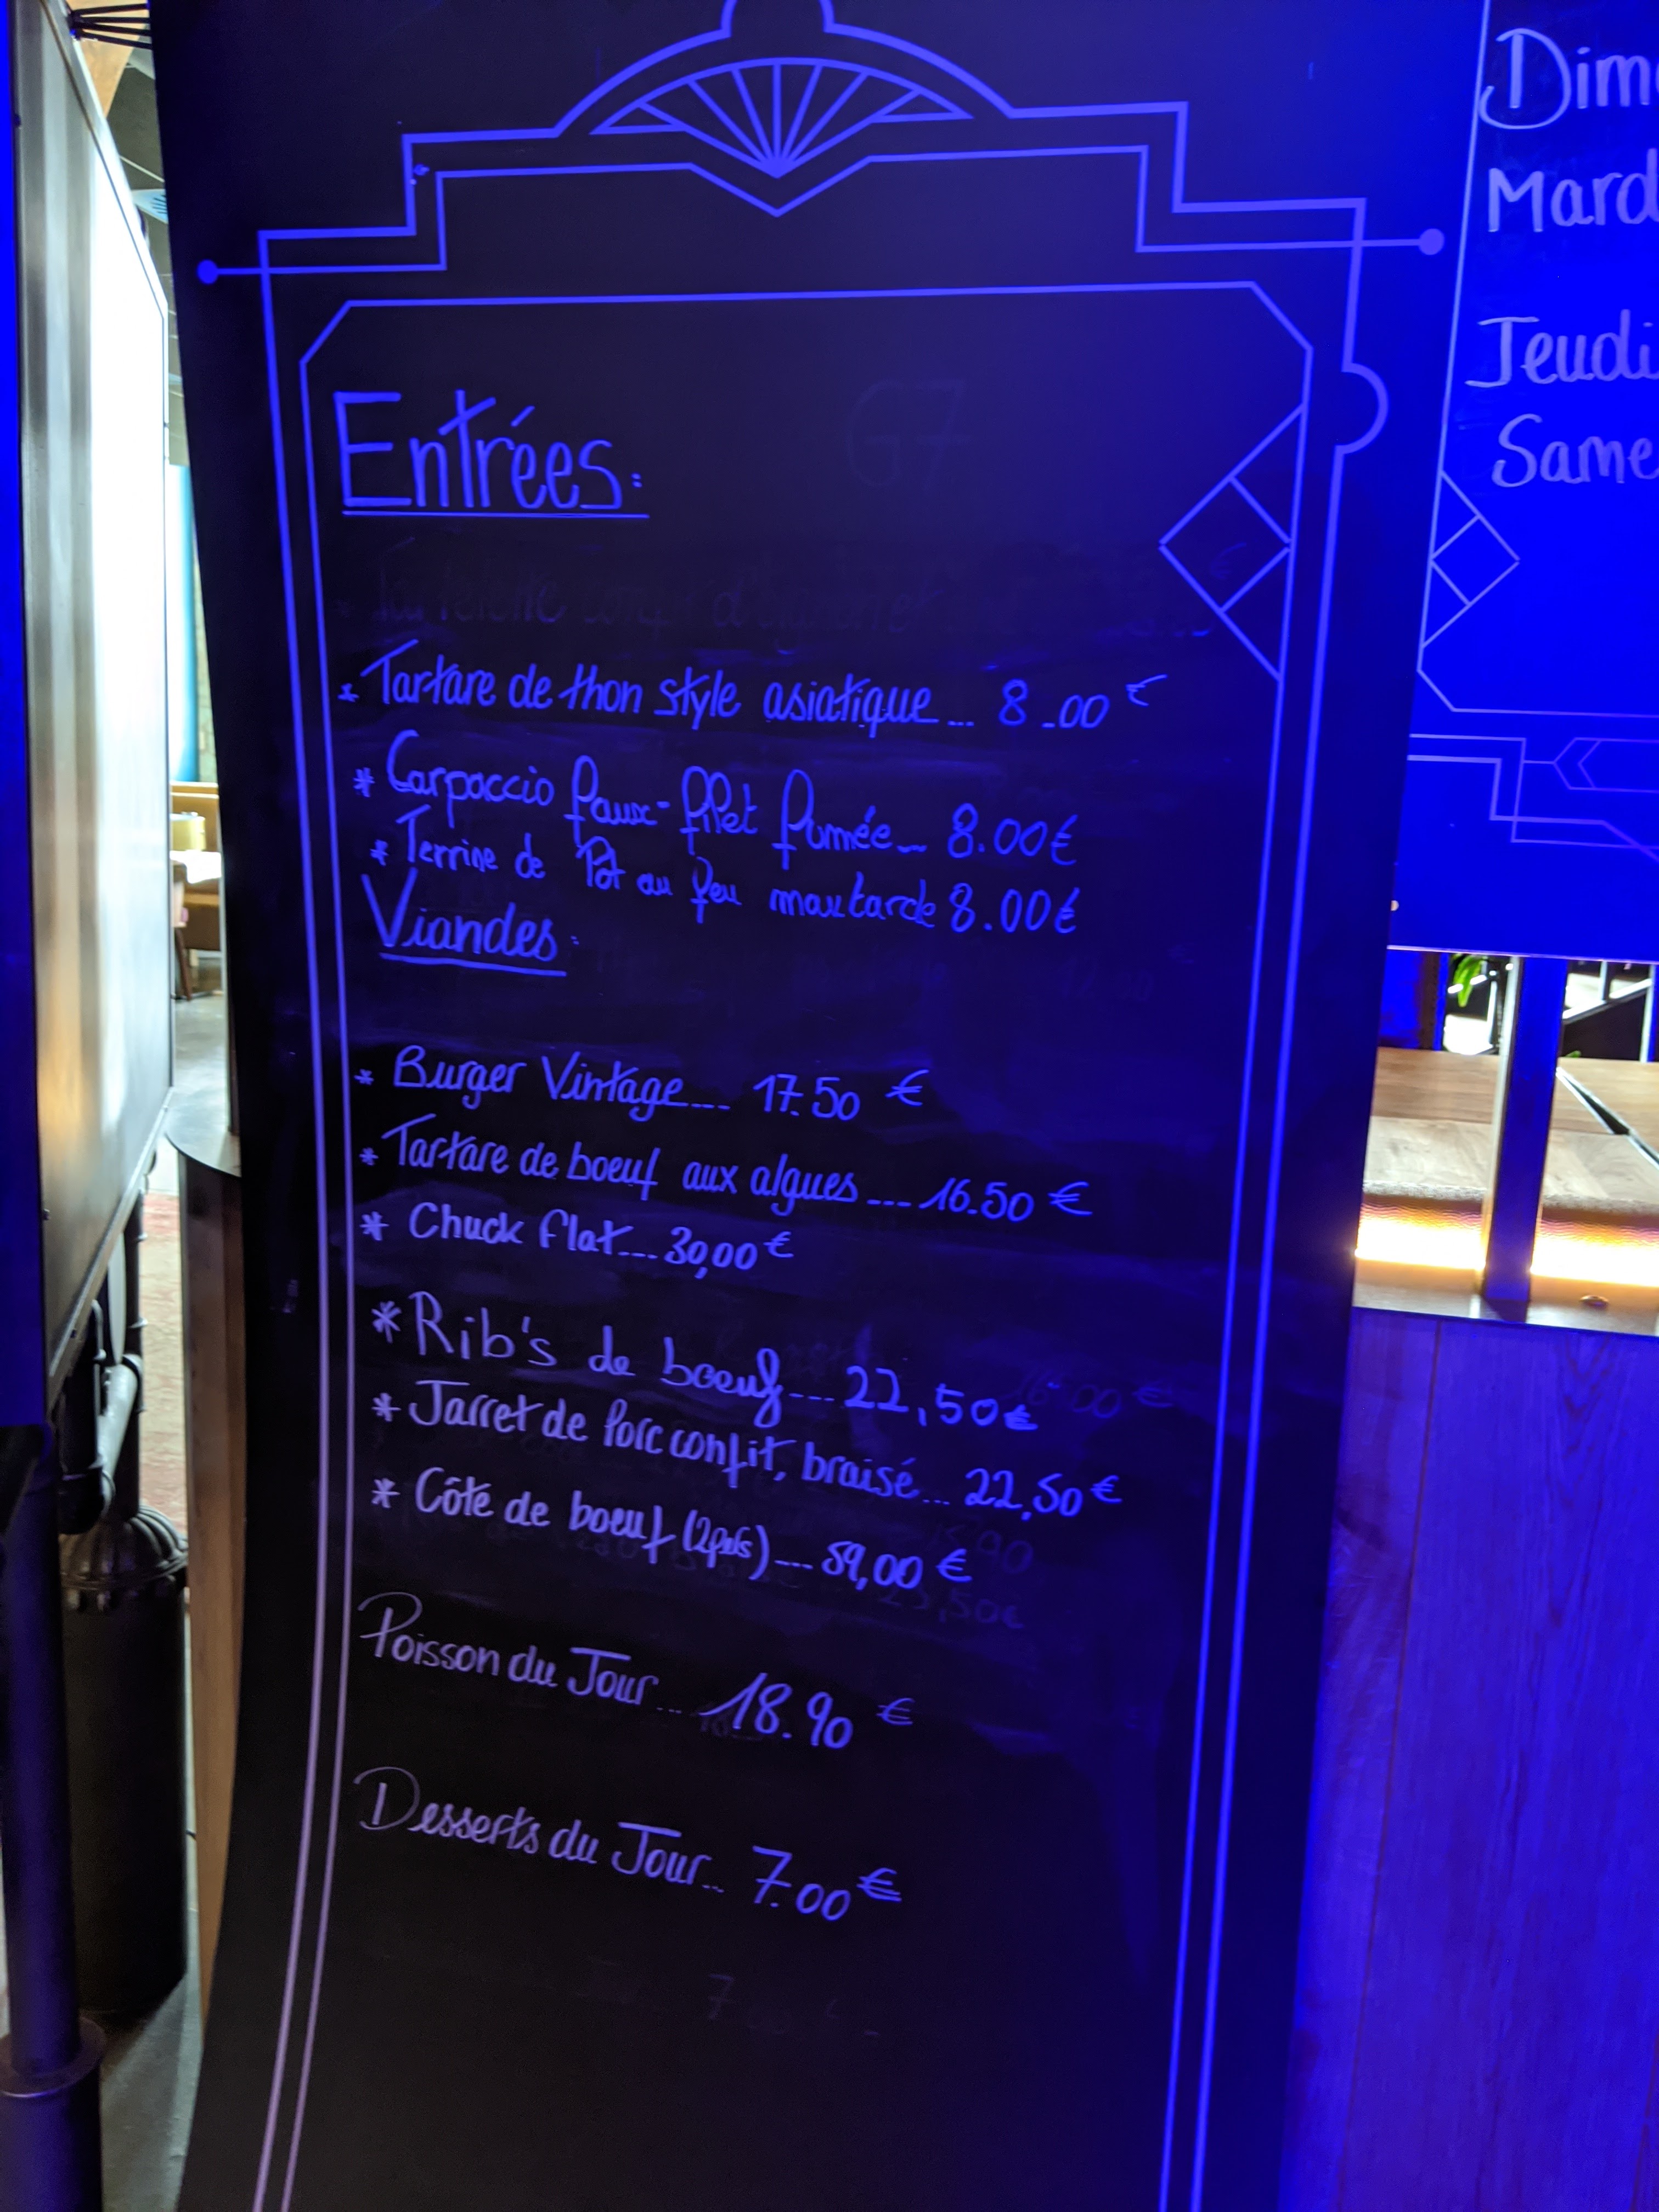 Entrées:
* Tartare de thon style asiatique... 8.00 €
* Carpaccio faux-filet fumée... 8.00€
* Terrine de Pot au feu moutarde 8.00€
Viandes:
* Burger Vintage.... 17.50 €
* Tartare de boeuf aux algues.... 16.50 €
* Chuck flat.... 30,00€
* Rib's de boeuf.... 22,50€
* Jarret de Porc confit, braisé... 22,50€
* Côte de boeuf (2pers).... 59,00 €
Poisson du Jour.... 18.90 €
Desserts du Jour... 7.00€
Dim
Mard
Jeudi
Same